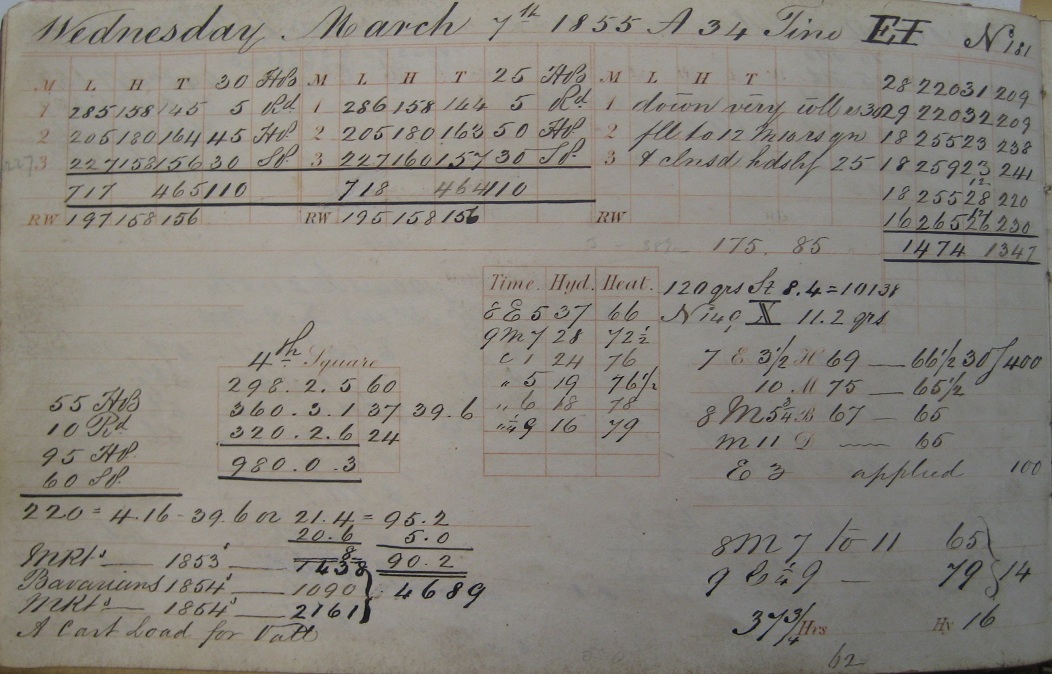 Wednesday March 7th 1855 A 34 Tine EI No 181
M L H T 30 HB M L H T 25 HB M L H T
1 285 158 145 5 Rd 1 286 158 144 5 Rd 1 down very well
2 205 180 164 45 2 205 180 163 50 2 to 12
3 227 158 156 30 3 227 160 157 30 3 & clnsd 25
717 465 110 718 464 110
RW 197 158 156 RW 195 158 156 RW
28 22031 209
29 22032 209
18 25523 238
18 25923 241
12
18 25528 220
16 230
1474 1347
175. 85
Time. Hyd. Heat.
8 E 5 37 66
9 M 7 28 72½
" 1 24 76
" 5 19 76½
" 6 18 78
" ¼9 16 79
120 grs St 8.4 = 10138
No 140, X 11.2 grs
7 E 3½ H 69 — 66½ 30 } 400
10 M 75 — 65½
8 M 5¾ B 67 — 65
M 11 D — 65
E 3 applied 100
4th Square
298.2.5 60
360.3.1 37 39.6
320.2.6 24
980.0.3
55 HB
10 Rd
95
60
220 = 4.16 - 39.6 or 21.4 = 95.2
20.6 5.0
90.2
MKts — 1853s — 1438
Bavarians 1854s — 1090 } 4689
MKts — 1854s — 2161
A Cart Load for Vatt
8 M 7 to 11 65
9 to ¼9 — 79 } 14
37¾ Hrs Hy 16
62